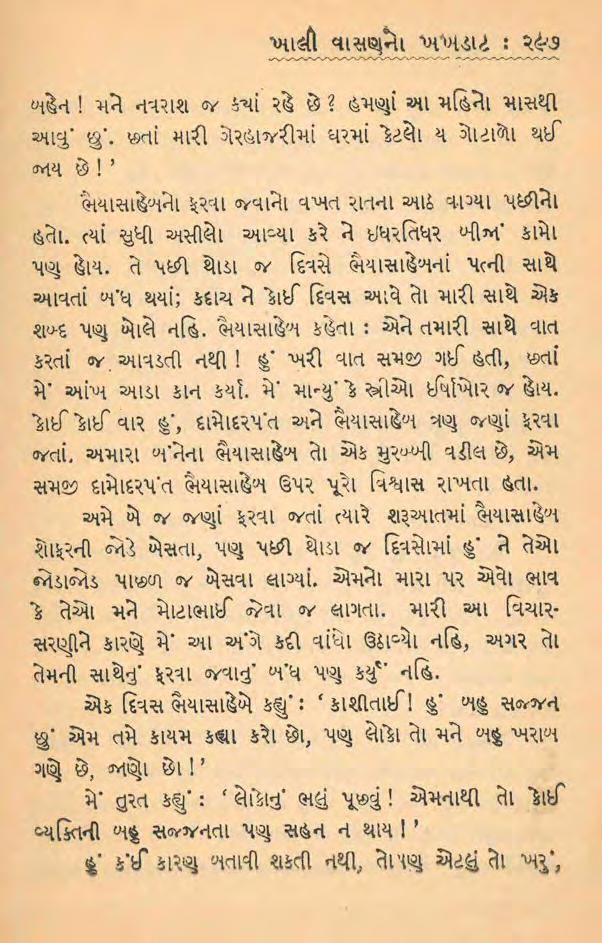 ખાલી વાસણનો ખખડાટ : ૨૯૭
બહેન ! મને નવરાશ જ ક્યાં રહે છે ? હમણાં આ મહિનો માસથી
આવું છું. છતાં મારી ગેરહાજરીમાં ઘરમાં કેટલો ય ગોટાળો થઈ
જાય છે ! ’
ભૈયાસાહેબનો ફરવા જવાનો વખત રાતના આઠ વાગ્યા પછીનો
હતો. ત્યાં સુધી અસીલો આવ્યા કરે ને ઇધરતિધર બીજાં કામો
પણ હોય. તે પછી થોડા જ દિવસે ભૈયાસાહેબનાં પત્ની સાથે
આવતાં બંધ થયાં; કદાચ ને કોઈ દિવસ આવે તો મારી સાથે એક
શબ્દ પણ બોલે નહિ. ભૈયાસાહેબ કહેતા : એને તમારી સાથે વાત
કરતાં જ આવડતી નથી ! હું ખરી વાત સમજી ગઈ હતી, છતાં
મેં આંખ આડા કાન કર્યા. મેં માન્યું કે સ્ત્રીઓ ઈર્ષાખોર જ હોય.
કોઈ કોઈ વાર હું, દામોદરપંત અને ભૈયાસાહેબ ત્રણ જણાં ફરવા
જતાં. અમારા બંનેના ભૈયાસાહેબ તો એક મુરબ્બી વડીલ છે, એમ
સમજી દામોદરપંત ભૈયાસાહેબ ઉપર પૂરો વિશ્વાસ રાખતા હતા.
અમે બે જ જણાં ફરવા જતાં ત્યારે શરૂઆતમાં ભૈયાસાહેબ
શોફરની જોડે બેસતા, પણ પછી થોડા જ દિવસોમાં હું ને તેઓ
જોડાજોડ પાછળ જ બેસવા લાગ્યાં. એમનો મારા પર એવો ભાવ
કે તેઓ મને મોટાભાઈ જેવા જ લાગતા. મારી આ વિચાર-
સરણીને કારણે મેં આ અંગે કદી વાંધો ઉઠાવ્યો નહિ, અગર તો
તેમની સાથેનું ફરવા જવાનું બંધ પણ કર્યું નહિ.
એક દિવસ ભૈયાસાહેબે કહ્યું : ‘ કાશીતાઈ ! હું બહુ સજ્જન
છું એમ તમે કાયમ કહ્યા કરો છો, પણ લોકો તો મને બહુ ખરાબ
ગણે છે, જાણો છો ! ’
મેં તુરત કહ્યું : ‘ લોકોનું ભલું પૂછવું ! એમનાથી તો કોઈ
વ્યક્તિની બહુ સજ્જનતા પણ સહન ન થાય ! ’
હું કંઈ કારણ બતાવી શકતી નથી, તોપણ એટલું તો ખરું,